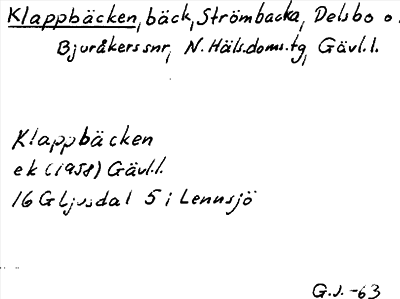 Klappbäcken, bäck, Strömbacka, Delsbo o.
Bjuråkers snr, N. Häls. doms. tg, Gävl.l.
Klappbäcken
ek (1958) Gävl.l.
16 G Ljusdal 5 i Lennsjö
G.J. -63